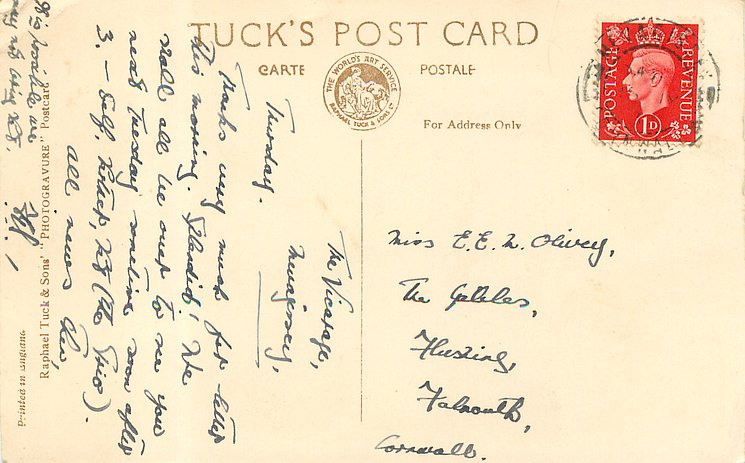 TUCK'S POST CARD
CARTE POSTALE
THE WORLD'S ART SERVICE
RAPHAEL TUCK & SONS LTD
For Address Only
POSTAGE REVENUE
1D
The Vicarage,
Thursday.
Thanks very much for letter
this morning. Splendid! We
shall all be over to see you
next Tuesday sometime soon after
3. – Self,
(the Trio).
all news then,
Miss E. E. M. Olivey,
The Gables,
Flushing,
Falmouth,
Cornwall.
Raphael Tuck & Sons' "PHOTOGRAVURE" Postcard
Printed in England